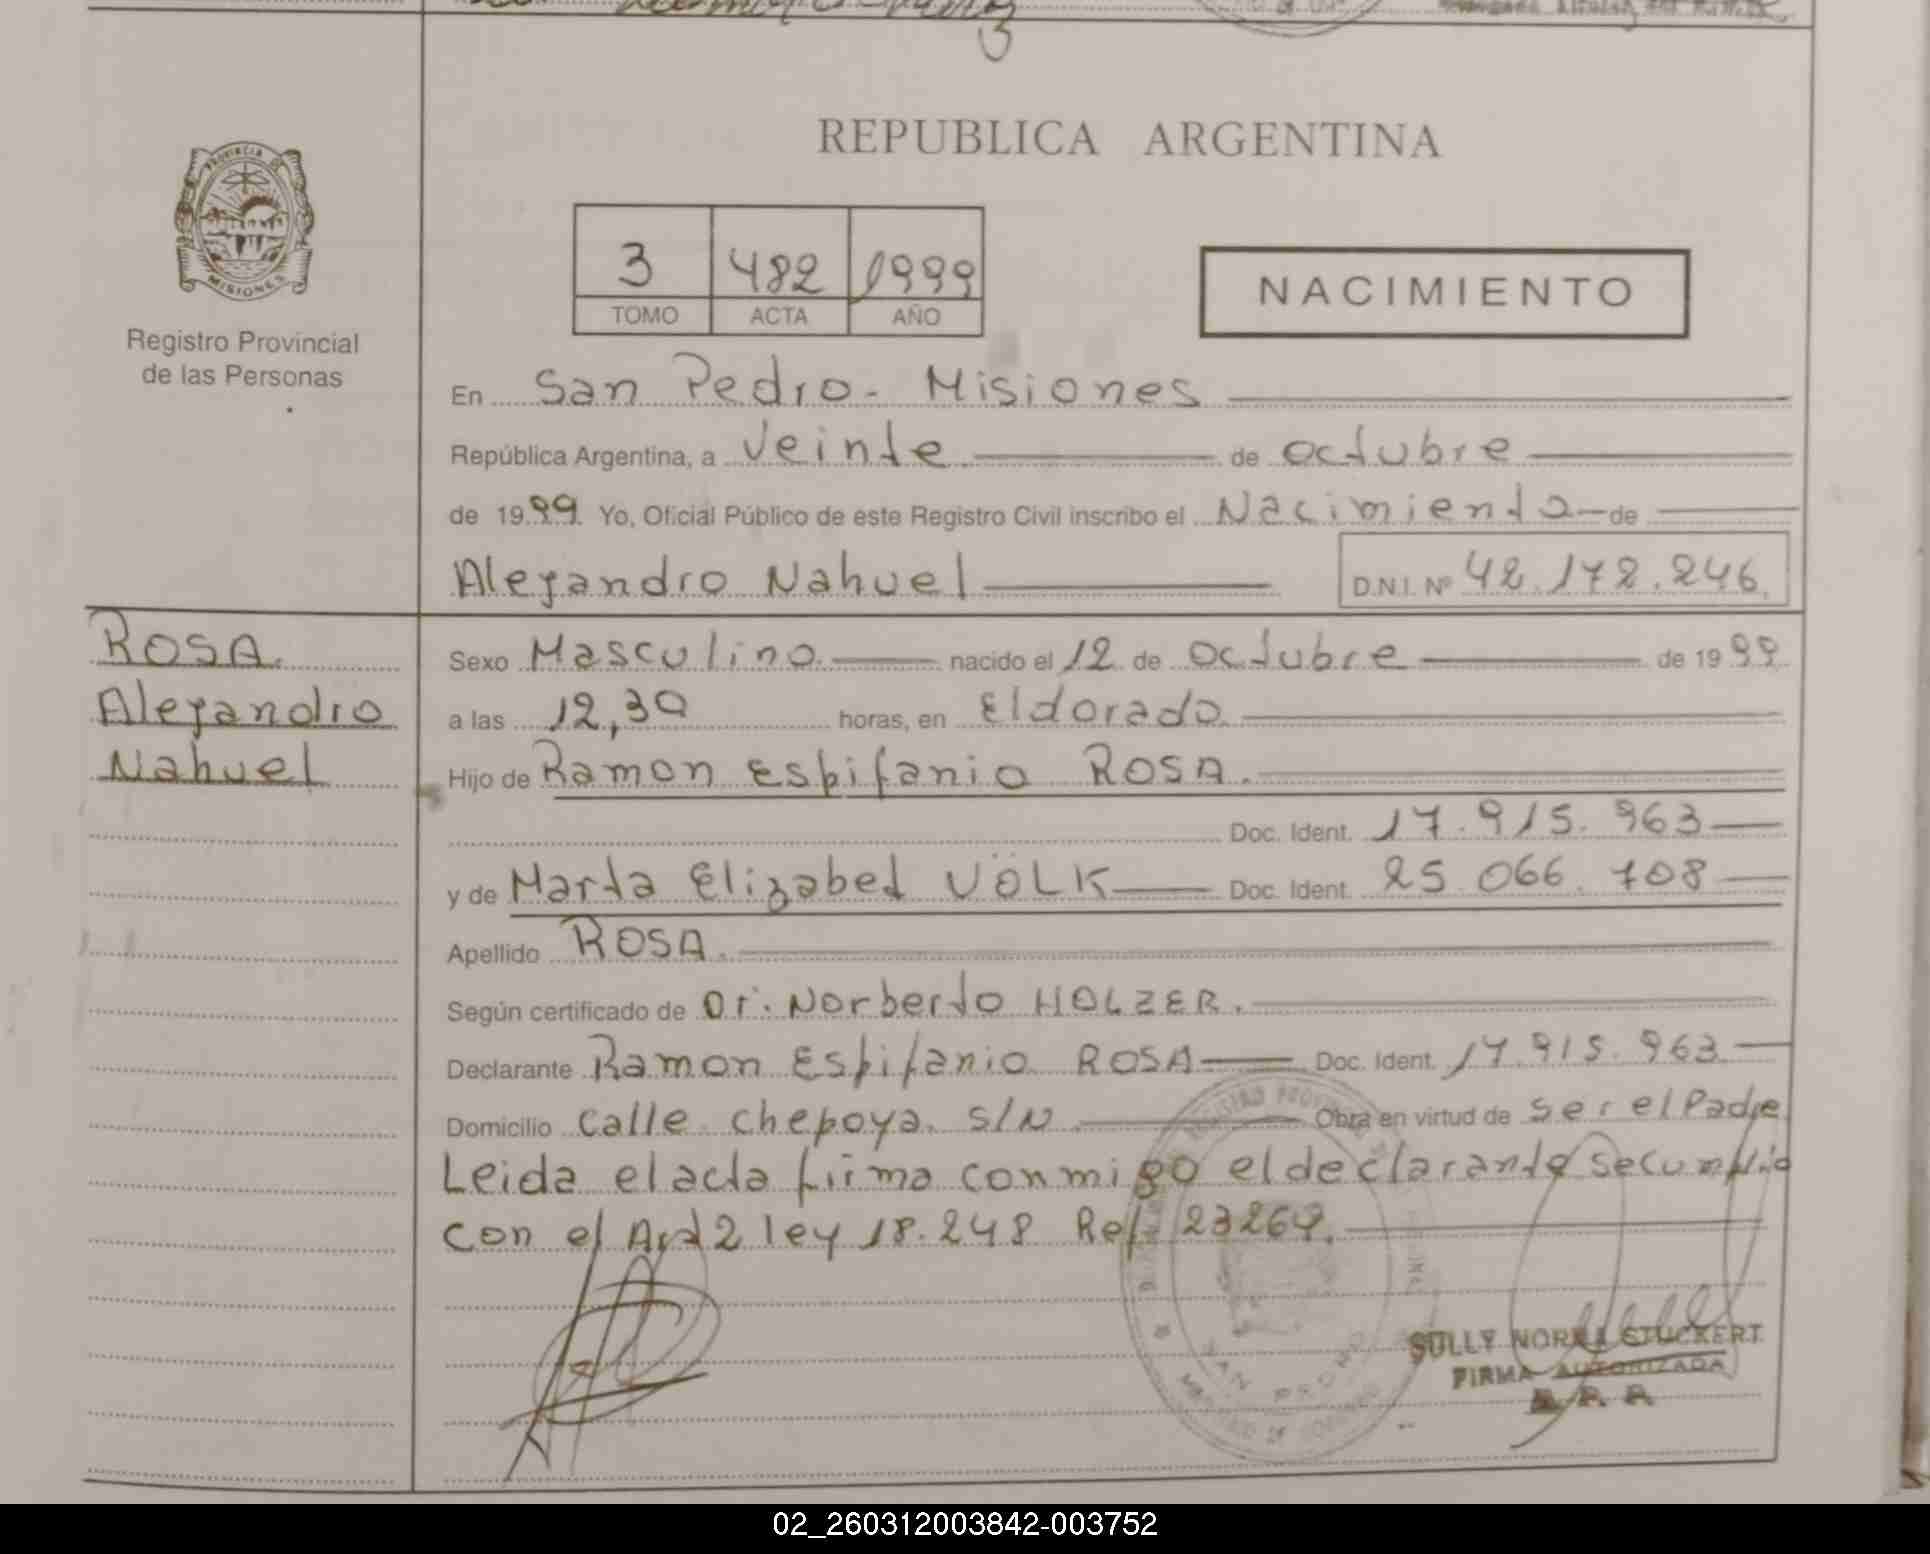 REPUBLICA ARGENTINA
PROVINCIA DE
MISIONES
Registro Provincial
de las Personas
3 482 1999
TOMO ACTA AÑO
NACIMIENTO
En San Pedro - Misiones
República Argentina, a veinte de octubre
de 1999 Yo, Oficial Público de este Registro Civil inscribo el Nacimiento de
Alejandro Nahuel D.N.I. Nº 42.172.246
ROSA
Alejandro
Nahuel
Sexo Masculino nacido el 12 de octubre de 1999
a las 12,30 horas, en Eldorado
Hijo de Ramon Espifanio ROSA.
Doc. Ident. 17.915.963
y de Marta Elizabet VÖLK Doc. Ident. 25.066.708
Apellido ROSA.
Según certificado de Dr. Norberto HOLZER.
Declarante Ramon Espifanio ROSA Doc. Ident. 17.915.963
Domicilio calle chepoya s/N Obra en virtud de ser el Padre
Leida el acta firma conmigo el declarante se cumplio
con el Art 2 ley 18.248 Ref. 23264.
REGISTRO PROVINCIAL DE
SAN PEDRO
SULLY NORMA STUCKERT
FIRMA AUTORIZADA
02_260312003842-003752